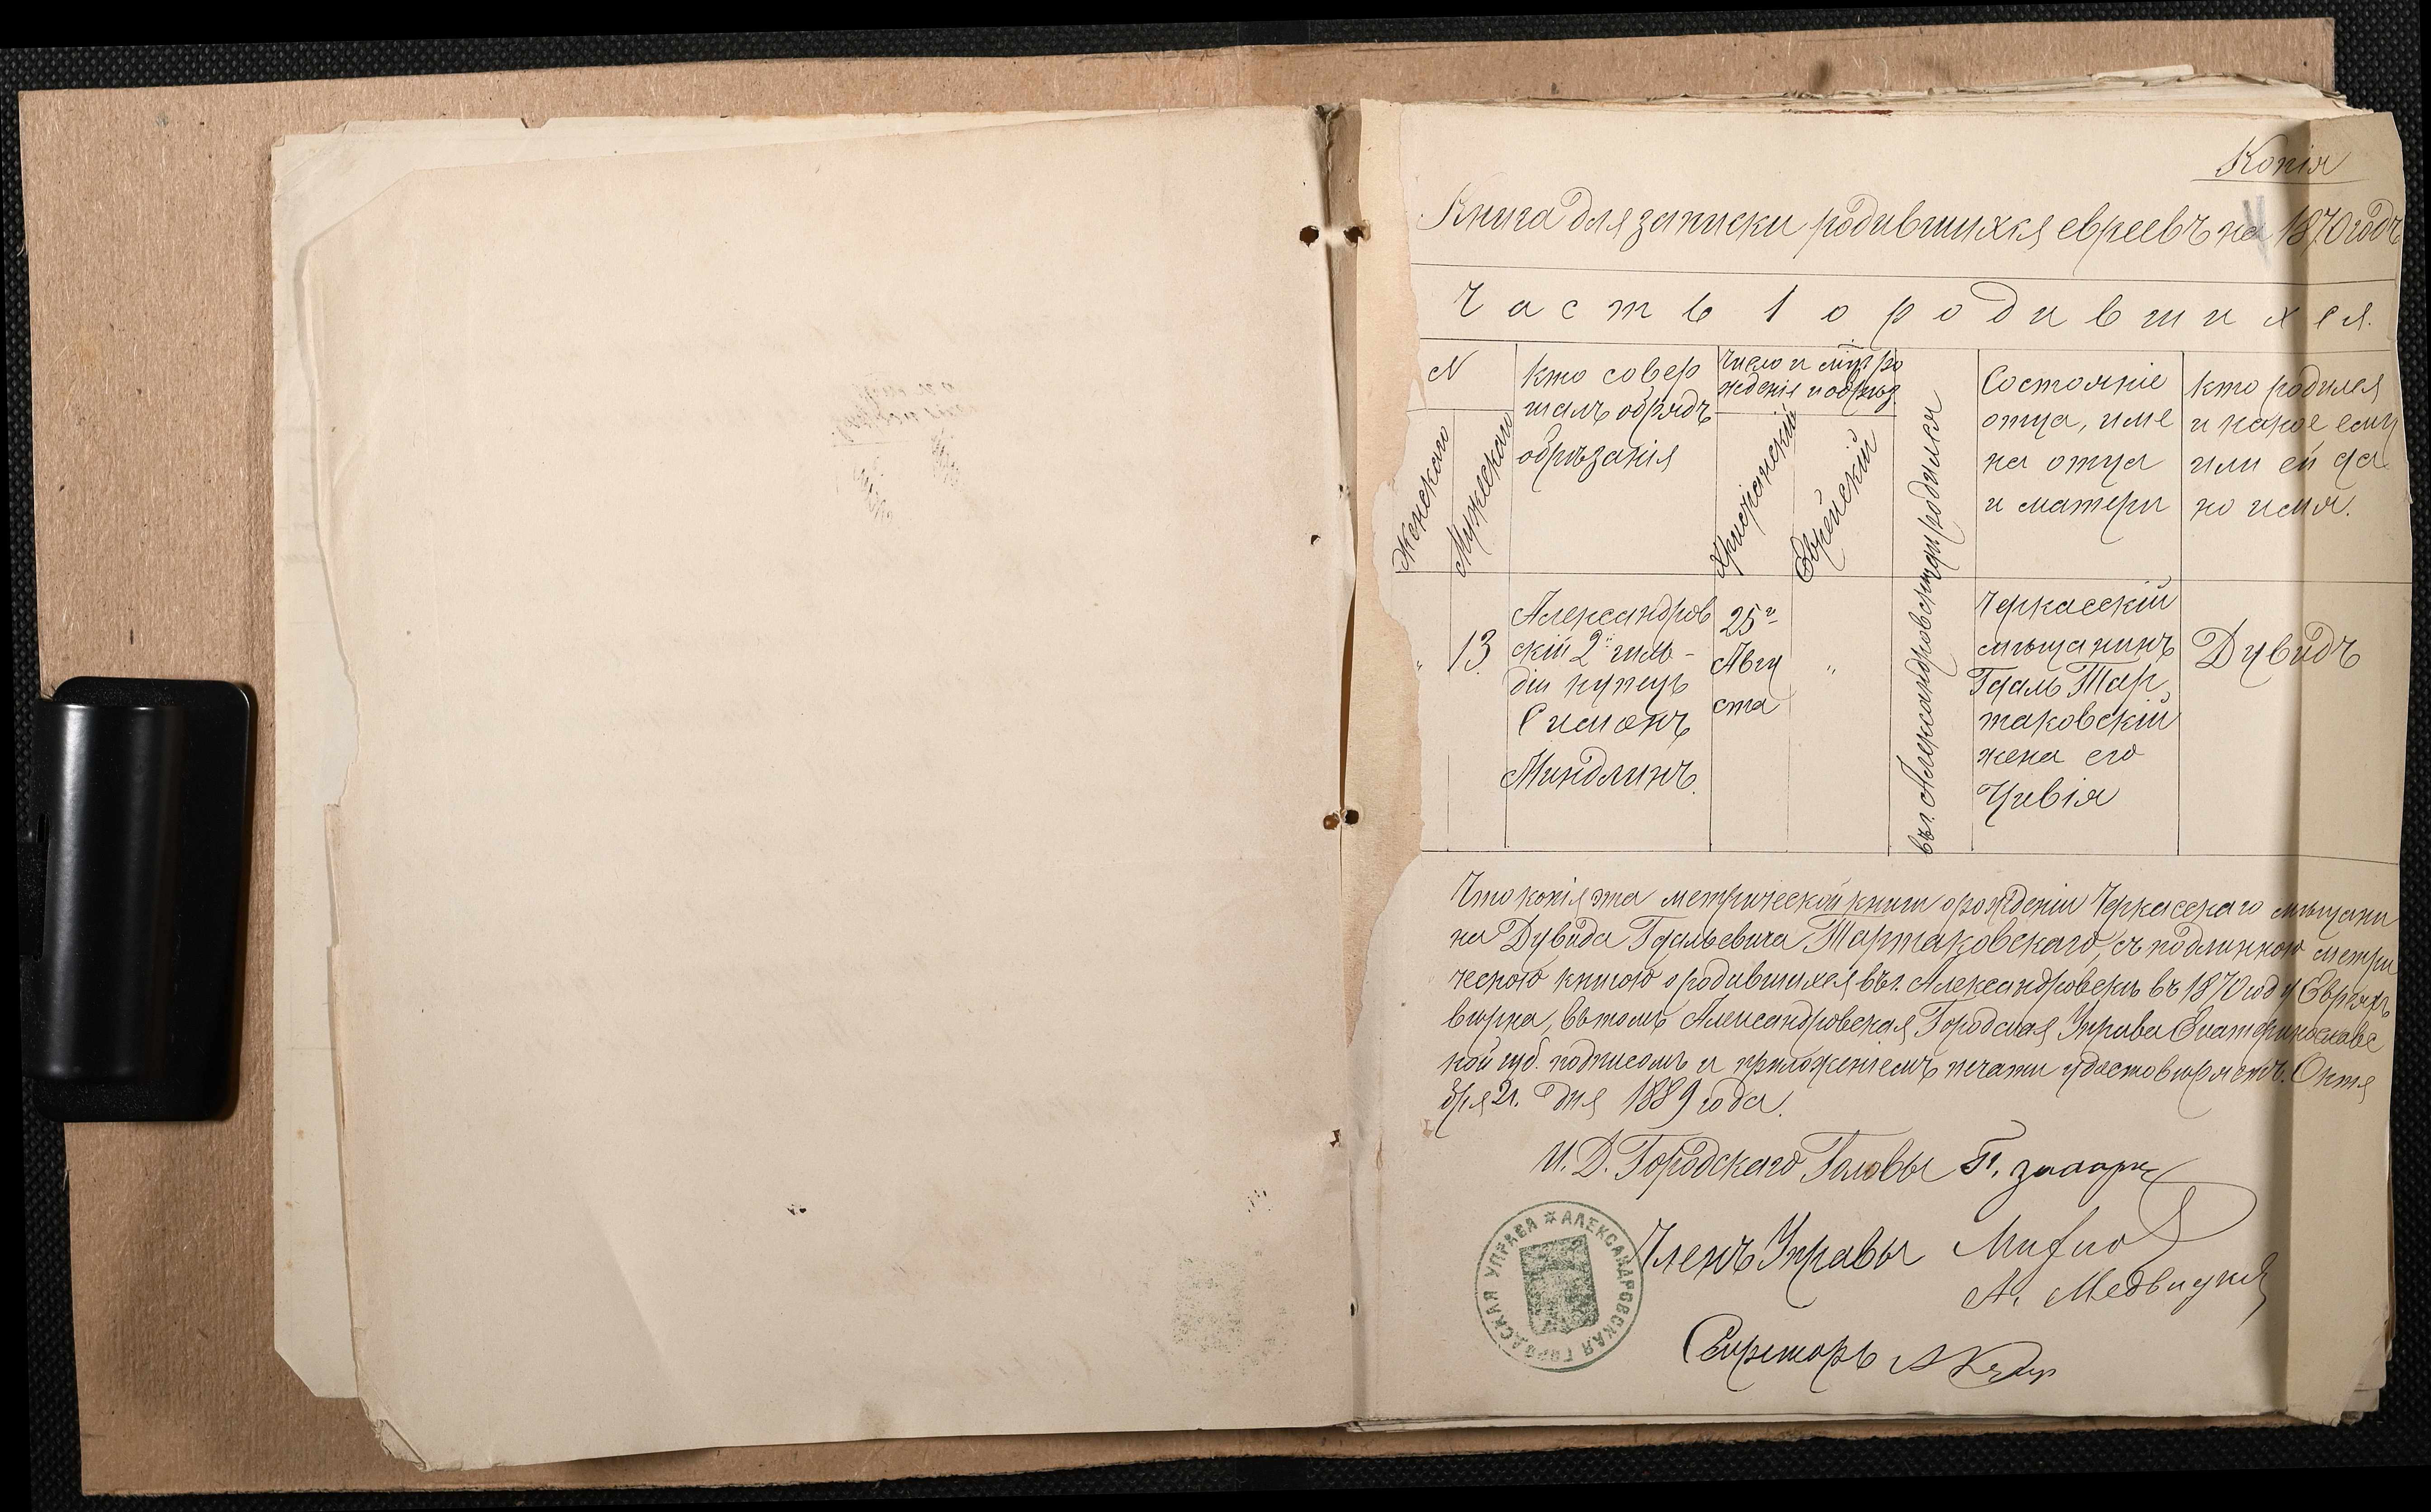 Копія
Книга для записки родившихся евреевъ на 1870 годъ
Часть 1 о родившихся.
N
Женскаго
Мужескаго
кто совер
шалъ обрядъ
обрѣзанія
Число и мѣс. ро
жденія и обрѣз.
Христіанскій
Еврейскій
въ г. Александровскѣ гдѣ родился
Состояніе
отца, име
на отца
и матери
кто родился
и какое ему
или ей да
но имя.
"
13
Александров
скій 2й гиль-
діи купецъ
Симонъ
Миндлинъ.
25го
Авгу
ста
"
Черкасскій
мѣщанинъ
Гдаль Тар
таковскій
жена его
Цивія
Дувидъ
Что копія эта метрической книги о рожденіи Черкасскаго мѣщани
на Дувида Гдальевича Тартаковскаго, съ подлинною метри
ческою книгою о родившихся въ г. Александровскѣ въ 1870 году Евреяхъ
вѣрна, въ томъ Александровская Городская Управа Екатеринославс
кой губ. подписомъ и приложеніемъ печати удостовѣряетъ. Октя
бря 21 дня 1889 года.
И. Д. Городскаго Головы
Членъ Управы
А. Медвидкій
Секретарь
АЛЕКСАНДРОВСКАЯ ГОРОДСКАЯ УПРАВА